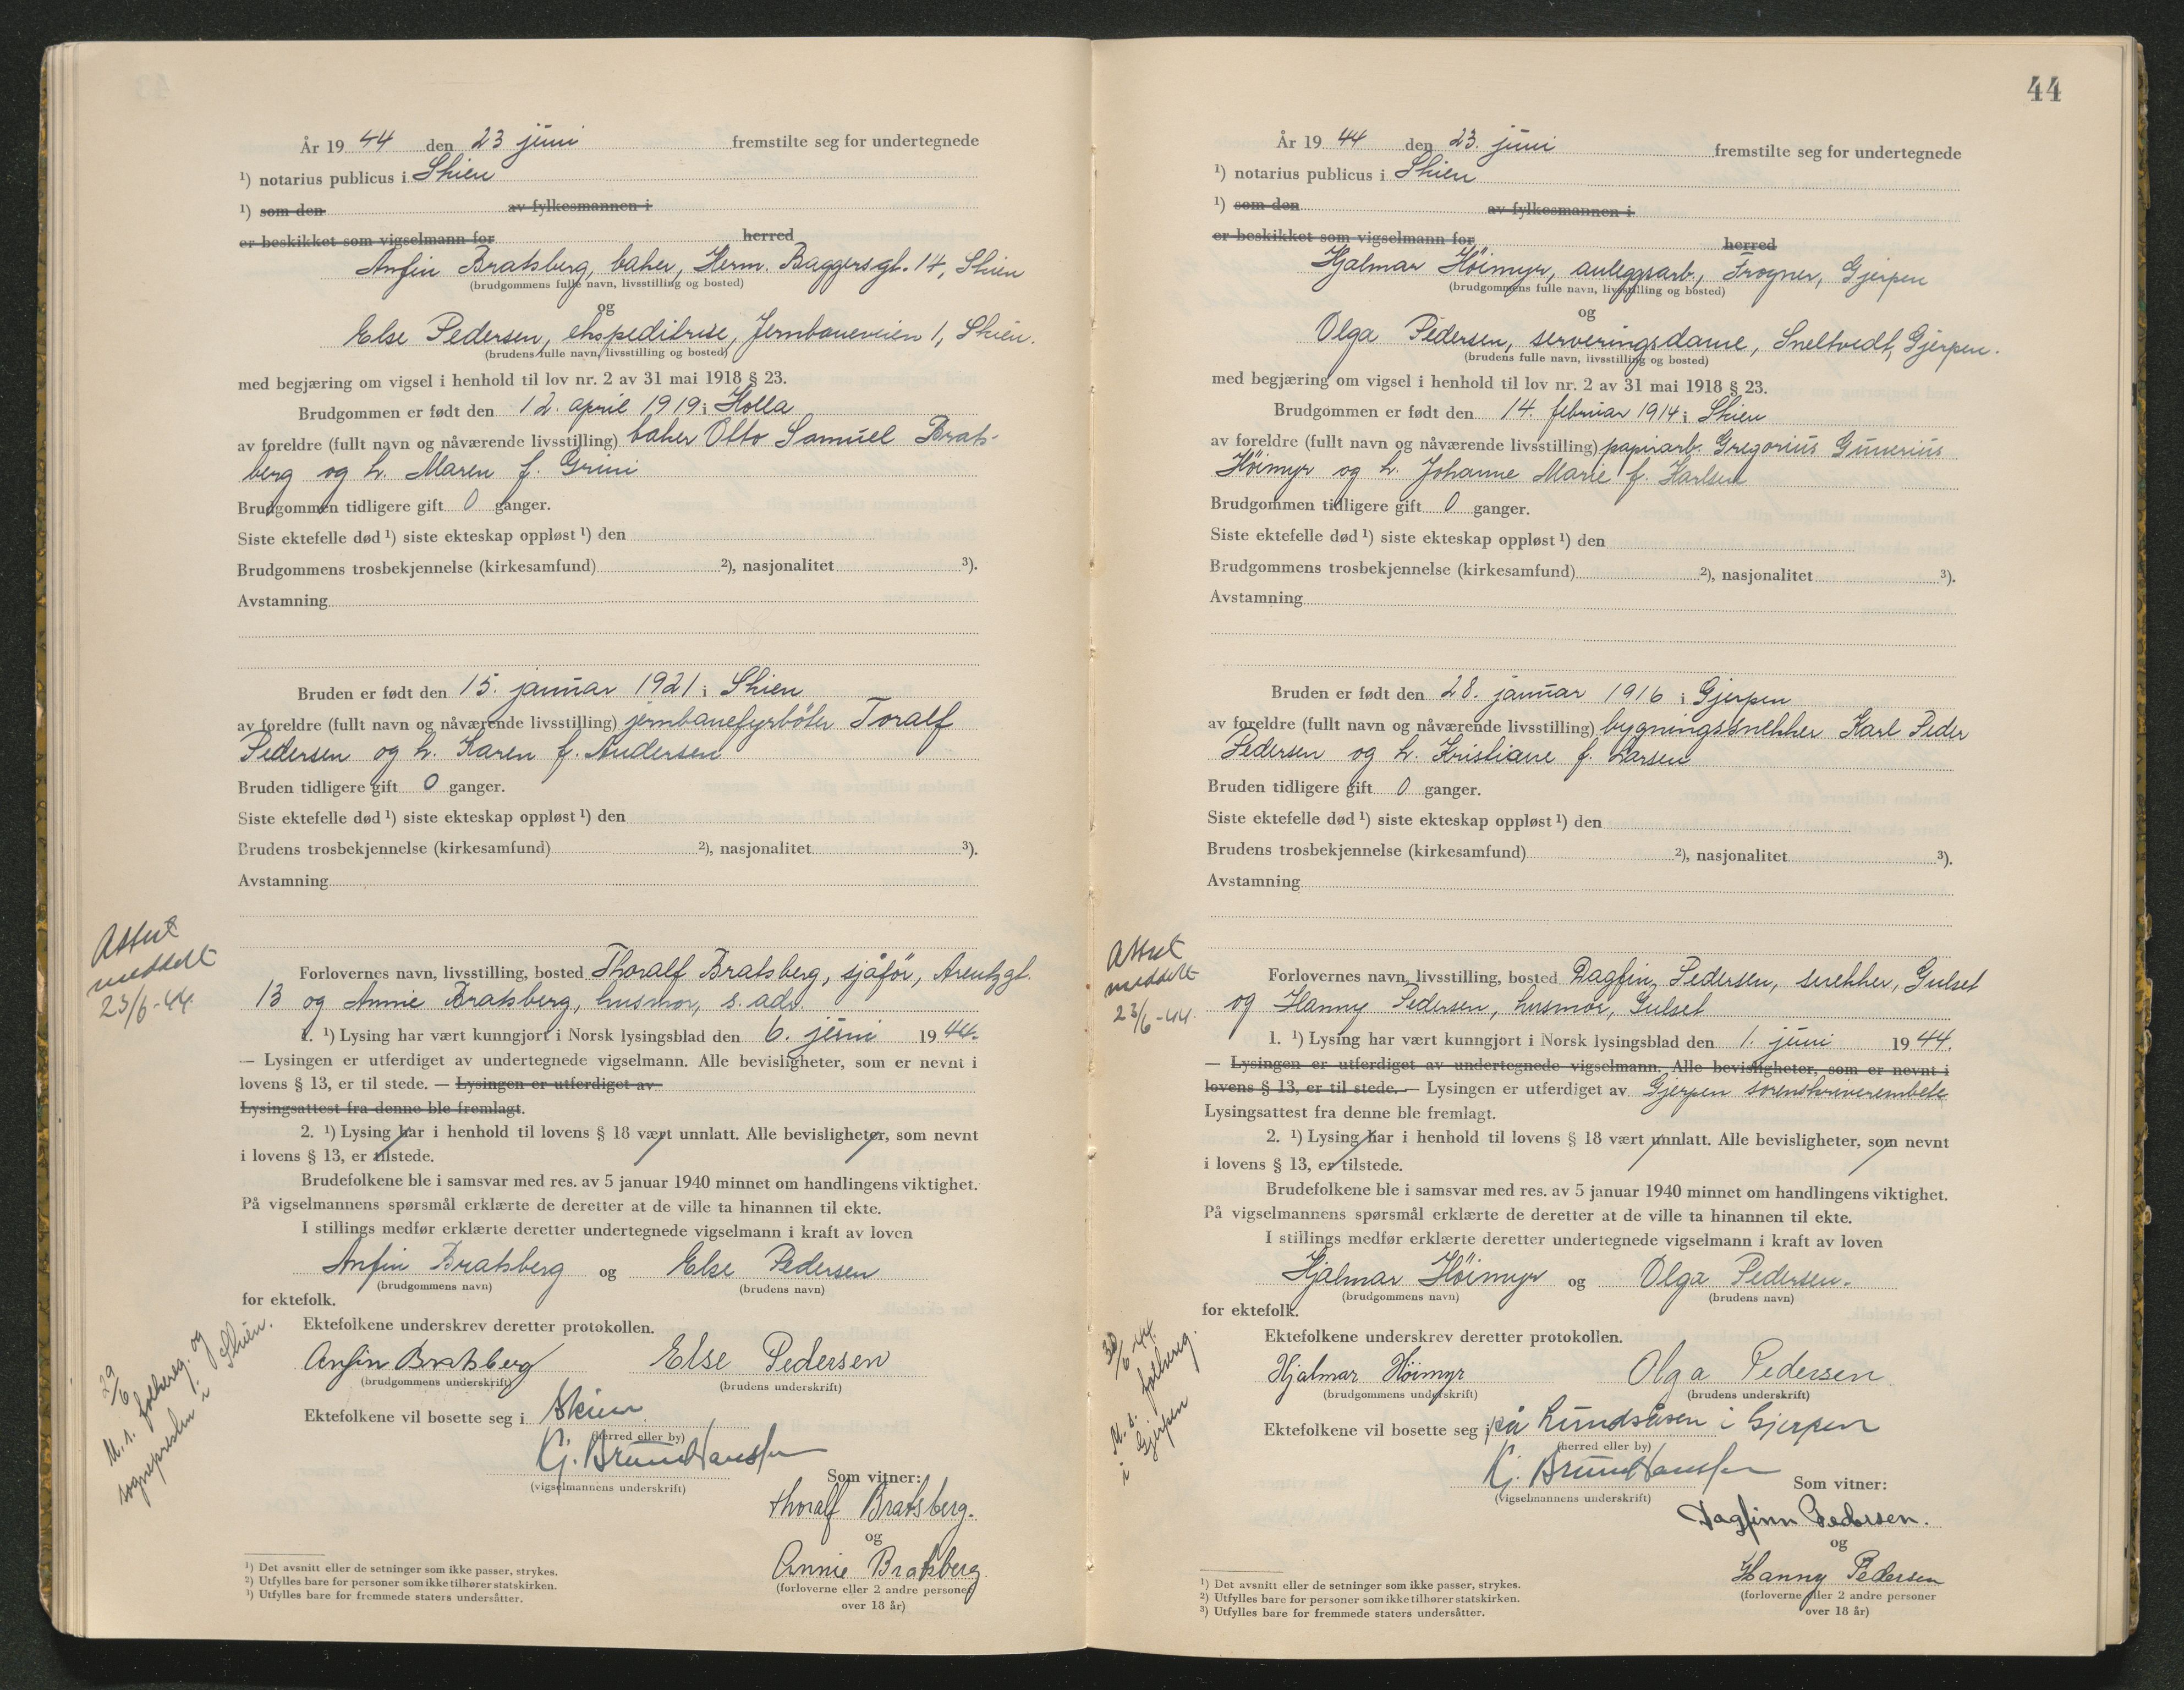 År 19 44 den 23 juni fremstilte seg for undertegnede
¹) notarius publicus i Skien
¹) som den av fylkesmannen i
er beskikket som vigselmann for herred
Anfin Bratsberg, baker, Herm. Baggersgt. 14, Skien
(brudgommens fulle navn, livsstilling og bosted)
og
Else Pedersen, ekspeditrise, Jernbaneveien 1, Skien.
(brudens fulle navn, livsstilling og bosted)
med begjæring om vigsel i henhold til lov nr. 2 av 31 mai 1918 § 23.
Brudgommen er født den 12. april 1919 i Holla
av foreldre (fullt navn og nåværende livsstilling) baker Otto Samuel Brats-
berg og h. Maren f. Grini
Brudgommen tidligere gift 0 ganger.
Siste ektefelle død ¹) siste ekteskap oppløst ¹) den
Brudgommens trosbekjennelse (kirkesamfund) ²), nasjonalitet ³).
Avstamning
Bruden er født den 15. januar 1921 i Skien
av foreldre (fullt navn og nåværende livsstilling) jernbanefyrbøter Toralf
Pedersen og h. Karen f. Andersen
Bruden tidligere gift 0 ganger.
Siste ektefelle død ¹) siste ekteskap oppløst ¹) den
Brudens trosbekjennelse (kirkesamfund) ²), nasjonalitet ³).
Avstamning
Attest
meddelt
23/6-44.
Forlovernes navn, livsstilling, bosted Thoralf Bratsberg, sjåfør, Arentzgt.
13 og Annie Bratsberg, husmor, s. adr.
1. ¹) Lysing har vært kunngjort i Norsk lysingsblad den 6. juni 1944.
— Lysingen er utferdiget av undertegnede vigselmann. Alle bevisligheter, som er nevnt i
lovens § 13, er til stede. — Lysingen er utferdiget av
Lysingsattest fra denne ble fremlagt.
2. ¹) Lysing har i henhold til lovens § 18 vært unnlatt. Alle bevisligheter, som nevnt
i lovens § 13, er tilstede.
Brudefolkene ble i samsvar med res. av 5 januar 1940 minnet om handlingens viktighet.
På vigselmannens spørsmål erklærte de deretter at de ville ta hinannen til ekte.
I stillings medfør erklærte deretter undertegnede vigselmann i kraft av loven
Anfin Bratsberg og Else Pedersen
(brudgommens navn) (brudens navn)
for ektefolk.
Ektefolkene underskrev deretter protokollen.
Anfin Bratsberg Else Pedersen
(brudgommens underskrift) (brudens underskrift)
29/6
M. s. folkereg. og
sognepresten i Skien.
Ektefolkene vil bosette seg i Skien
(herred eller by)
(vigselmannens underskrift)
Som vitner:
Thoralf Bratsberg.
og
Annie Bratsberg
(forloverne eller 2 andre personer
over 18 år)
¹) Det avsnitt eller de setninger som ikke passer, strykes.
²) Utfylles bare for personer som ikke tilhører statskirken.
³) Utfylles bare for fremmede staters undersåtter.
44
År 19 44 den 23. juni fremstilte seg for undertegnede
¹) notarius publicus i Skien
¹) som den av fylkesmannen i
er beskikket som vigselmann for herred
Hjalmar Höimyr, anleggsarb., Frogner, Gjerpen
(brudgommens fulle navn, livsstilling og bosted)
og
Olga Pedersen, serveringsdame, Sneltvedt, Gjerpen.
(brudens fulle navn, livsstilling og bosted)
med begjæring om vigsel i henhold til lov nr. 2 av 31 mai 1918 § 23.
Brudgommen er født den 14. februar 1914 i Skien
av foreldre (fullt navn og nåværende livsstilling) papirarb. Gregorius Gunerius
Höimyr og h. Johanne Marie f. Karlsen
Brudgommen tidligere gift 0 ganger.
Siste ektefelle død ¹) siste ekteskap oppløst ¹) den
Brudgommens trosbekjennelse (kirkesamfund) ²), nasjonalitet ³).
Avstamning
Bruden er født den 28. januar 1916 i Gjerpen
av foreldre (fullt navn og nåværende livsstilling) bygningssnekker Karl Peder
Pedersen og h. Kristiane f. Larsen
Bruden tidligere gift 0 ganger.
Siste ektefelle død ¹) siste ekteskap oppløst ¹) den
Brudens trosbekjennelse (kirkesamfund) ²), nasjonalitet ³).
Avstamning
Attest
meddelt
23/6-44.
Forlovernes navn, livsstilling, bosted Dagfin Pedersen, snekker, Gulset
og Hanny Pedersen, husmor, Gulset
1. ¹) Lysing har vært kunngjort i Norsk lysingsblad den 1. juni 1944.
— Lysingen er utferdiget av undertegnede vigselmann. Alle bevisligheter, som er nevnt i
lovens § 13, er til stede. — Lysingen er utferdiget av Gjerpen sorenskriverembete
Lysingsattest fra denne ble fremlagt.
2. ¹) Lysing har i henhold til lovens § 18 vært unnlatt. Alle bevisligheter, som nevnt
i lovens § 13, er tilstede.
Brudefolkene ble i samsvar med res. av 5 januar 1940 minnet om handlingens viktighet.
På vigselmannens spørsmål erklærte de deretter at de ville ta hinannen til ekte.
I stillings medfør erklærte deretter undertegnede vigselmann i kraft av loven
Hjalmar Höimyr og Olga Pedersen.
(brudgommens navn) (brudens navn)
for ektefolk.
Ektefolkene underskrev deretter protokollen.
Hjalmar Höimyr Olga Pedersen
(brudgommens underskrift) (brudens underskrift)
30/6-44.
M. s. folkereg.
i Gjerpen
Ektefolkene vil bosette seg i på Lundsåsen i Gjerpen
(herred eller by)
(vigselmannens underskrift)
Som vitner:
Dagfinn Pedersen.
og
Hanny Pedersen
(forloverne eller 2 andre personer
over 18 år)
¹) Det avsnitt eller de setninger som ikke passer, strykes.
²) Utfylles bare for personer som ikke tilhører statskirken.
³) Utfylles bare for fremmede staters undersåtter.